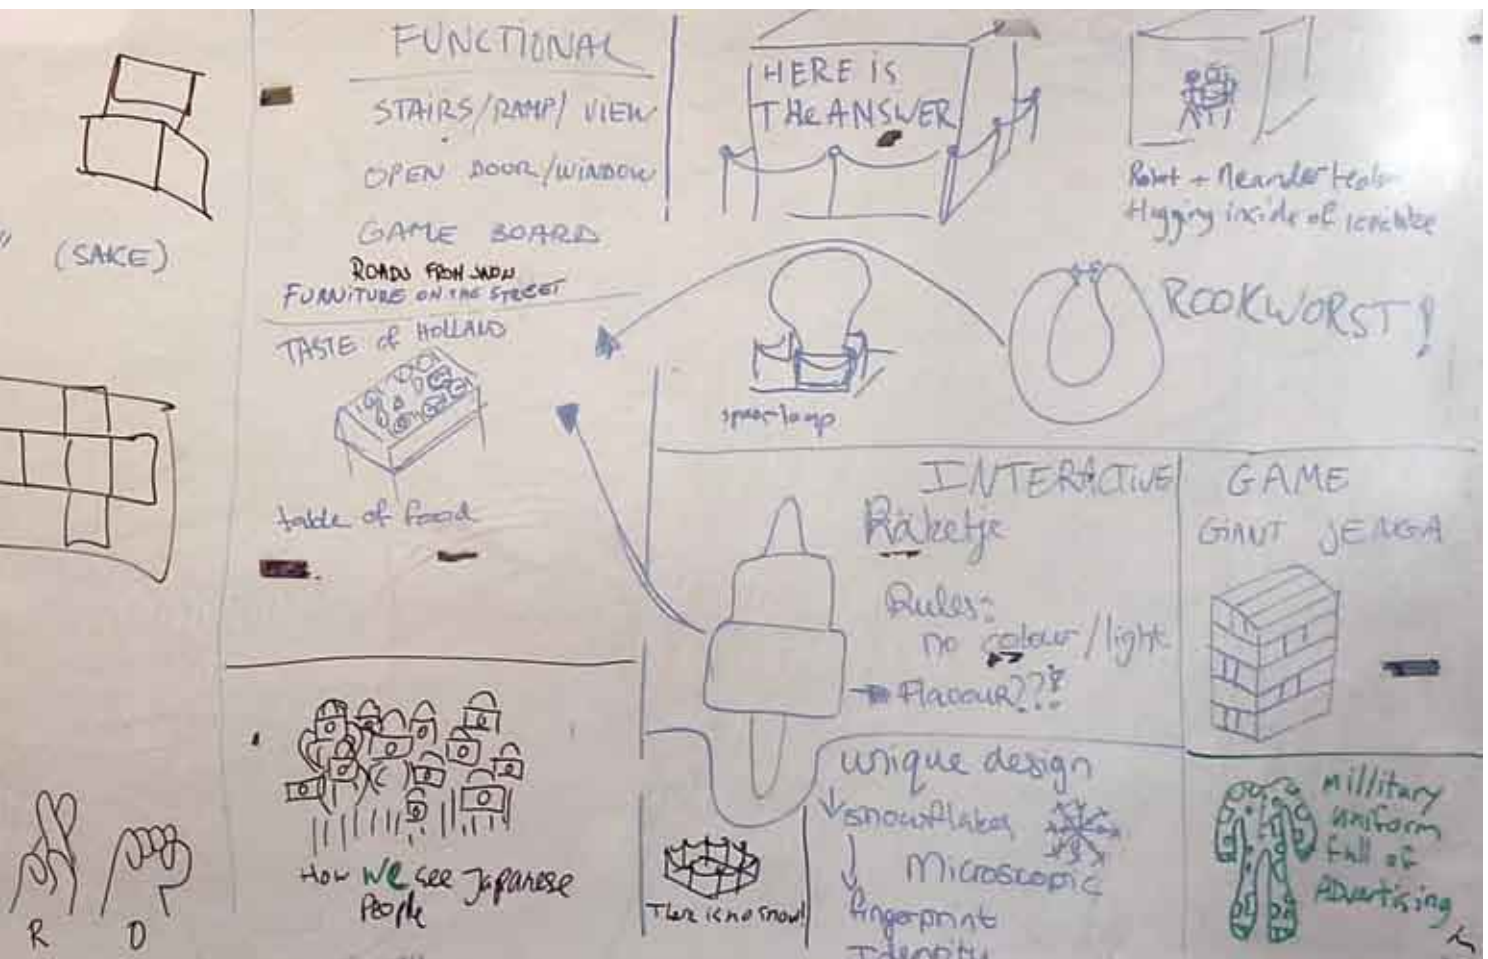 (SAKE)
R O
FUNCTIONAL
STAIRS/RAMP/ VIEW
OPEN DOOR/WINDOW
GAME BOARD
ROADS FROM
FURNITURE ON THE STREET
TASTE of HOLLAND
table of food
How we see Japanese
People
HERE iS
THe ANSWER
Robot + Neander
Hugging inside of
ROOKWORST!
lamp
INTERACTIVE
Raketje
Rules:
no colour/light
Flavour???
GAME
GIANT JENGA
unique design
snowflakes
Microscopic
fingerprint
Identity
There is no snow!
Millitary
uniform
full of
Advertising